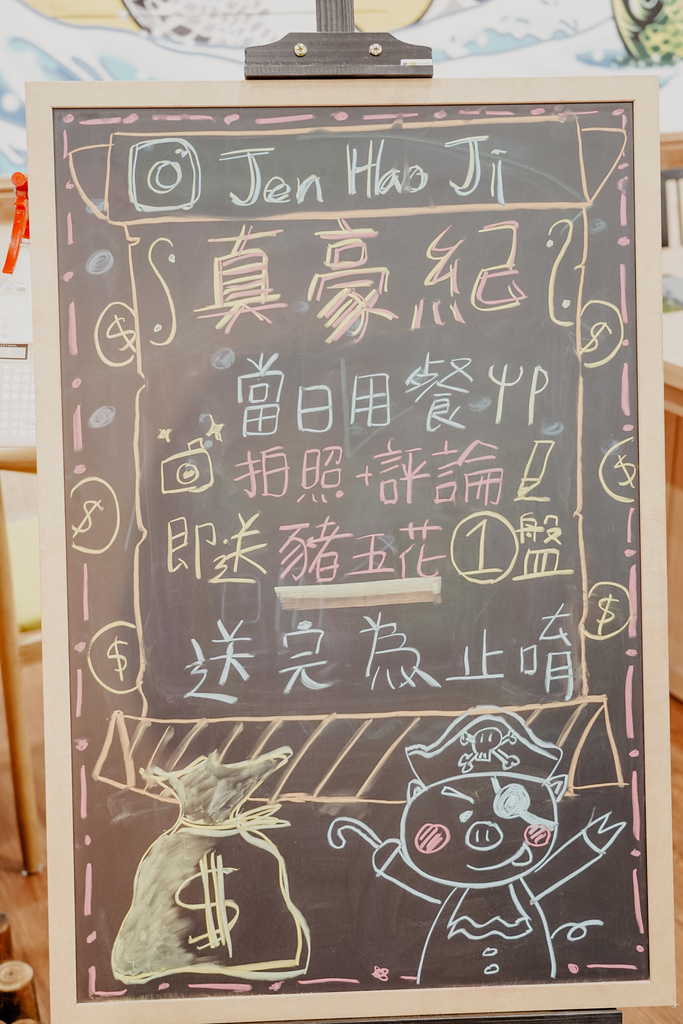 Jen Hao Ji
真豪紀
當日用餐
拍照+評論
即送豬五花①盤
送完為止唷